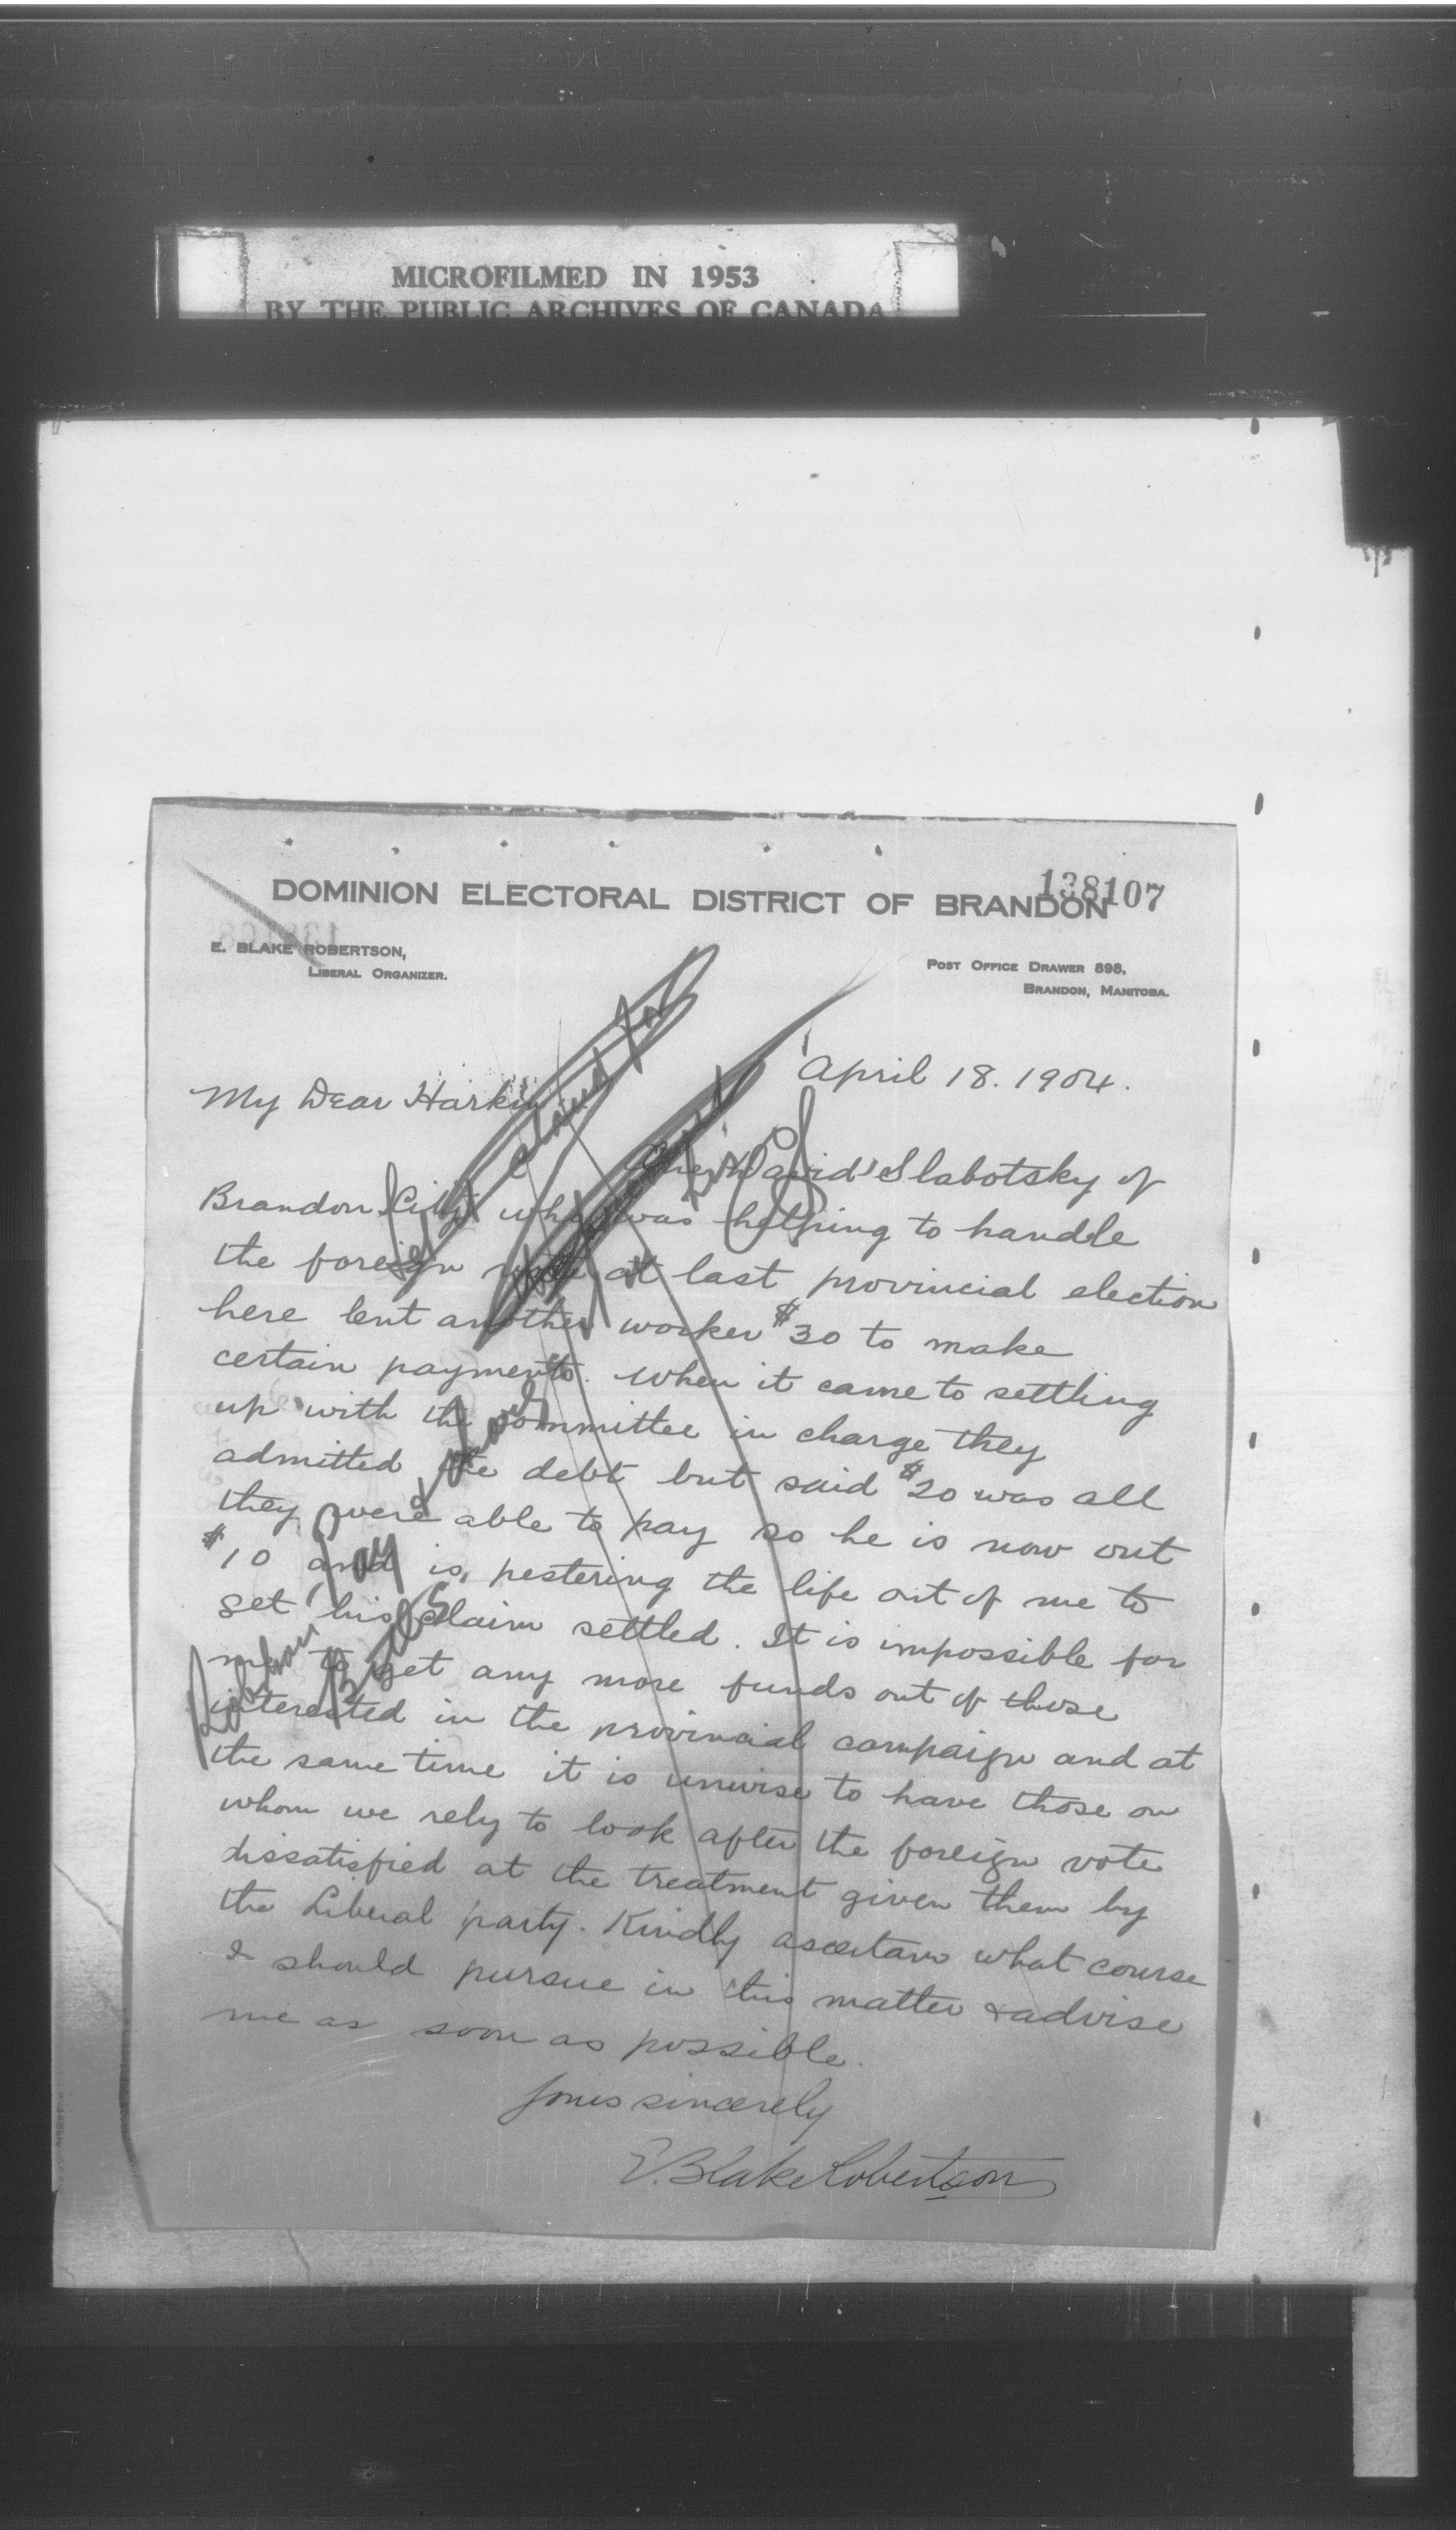 MICROFILMED IN 1953
BY THE PUBLIC ARCHIVES OF CANADA
138107
DOMINION ELECTORAL DISTRICT OF BRANDON
E. BLAKE ROBERTSON,
LIBERAL ORGANIZER.
POST OFFICE DRAWER 898,
BRANDON, MANITOBA.
April 18. 1904.
My Dear Harkin
One David Slabotsky of
Brandon City who was helping to handle
the foreign vote at last provincial election
here lent another worker $30 to make
certain payments. When it came to settling
up with the committee in charge they
admitted the debt but said $20 was all
they were able to pay so he is now out
$10 and is pestering the life out of me to
get his claim settled. It is impossible for
me to get any more funds out of those
interested in the provincial campaign and at
the same time it is unwise to have those on
whom we rely to look after the foreign vote
dissatisfied at the treatment given them by
the Liberal party. Kindly ascertain what course
I should pursue in this matter & advise
me as soon as possible.
Yours sincerely
E. Blake Robertson